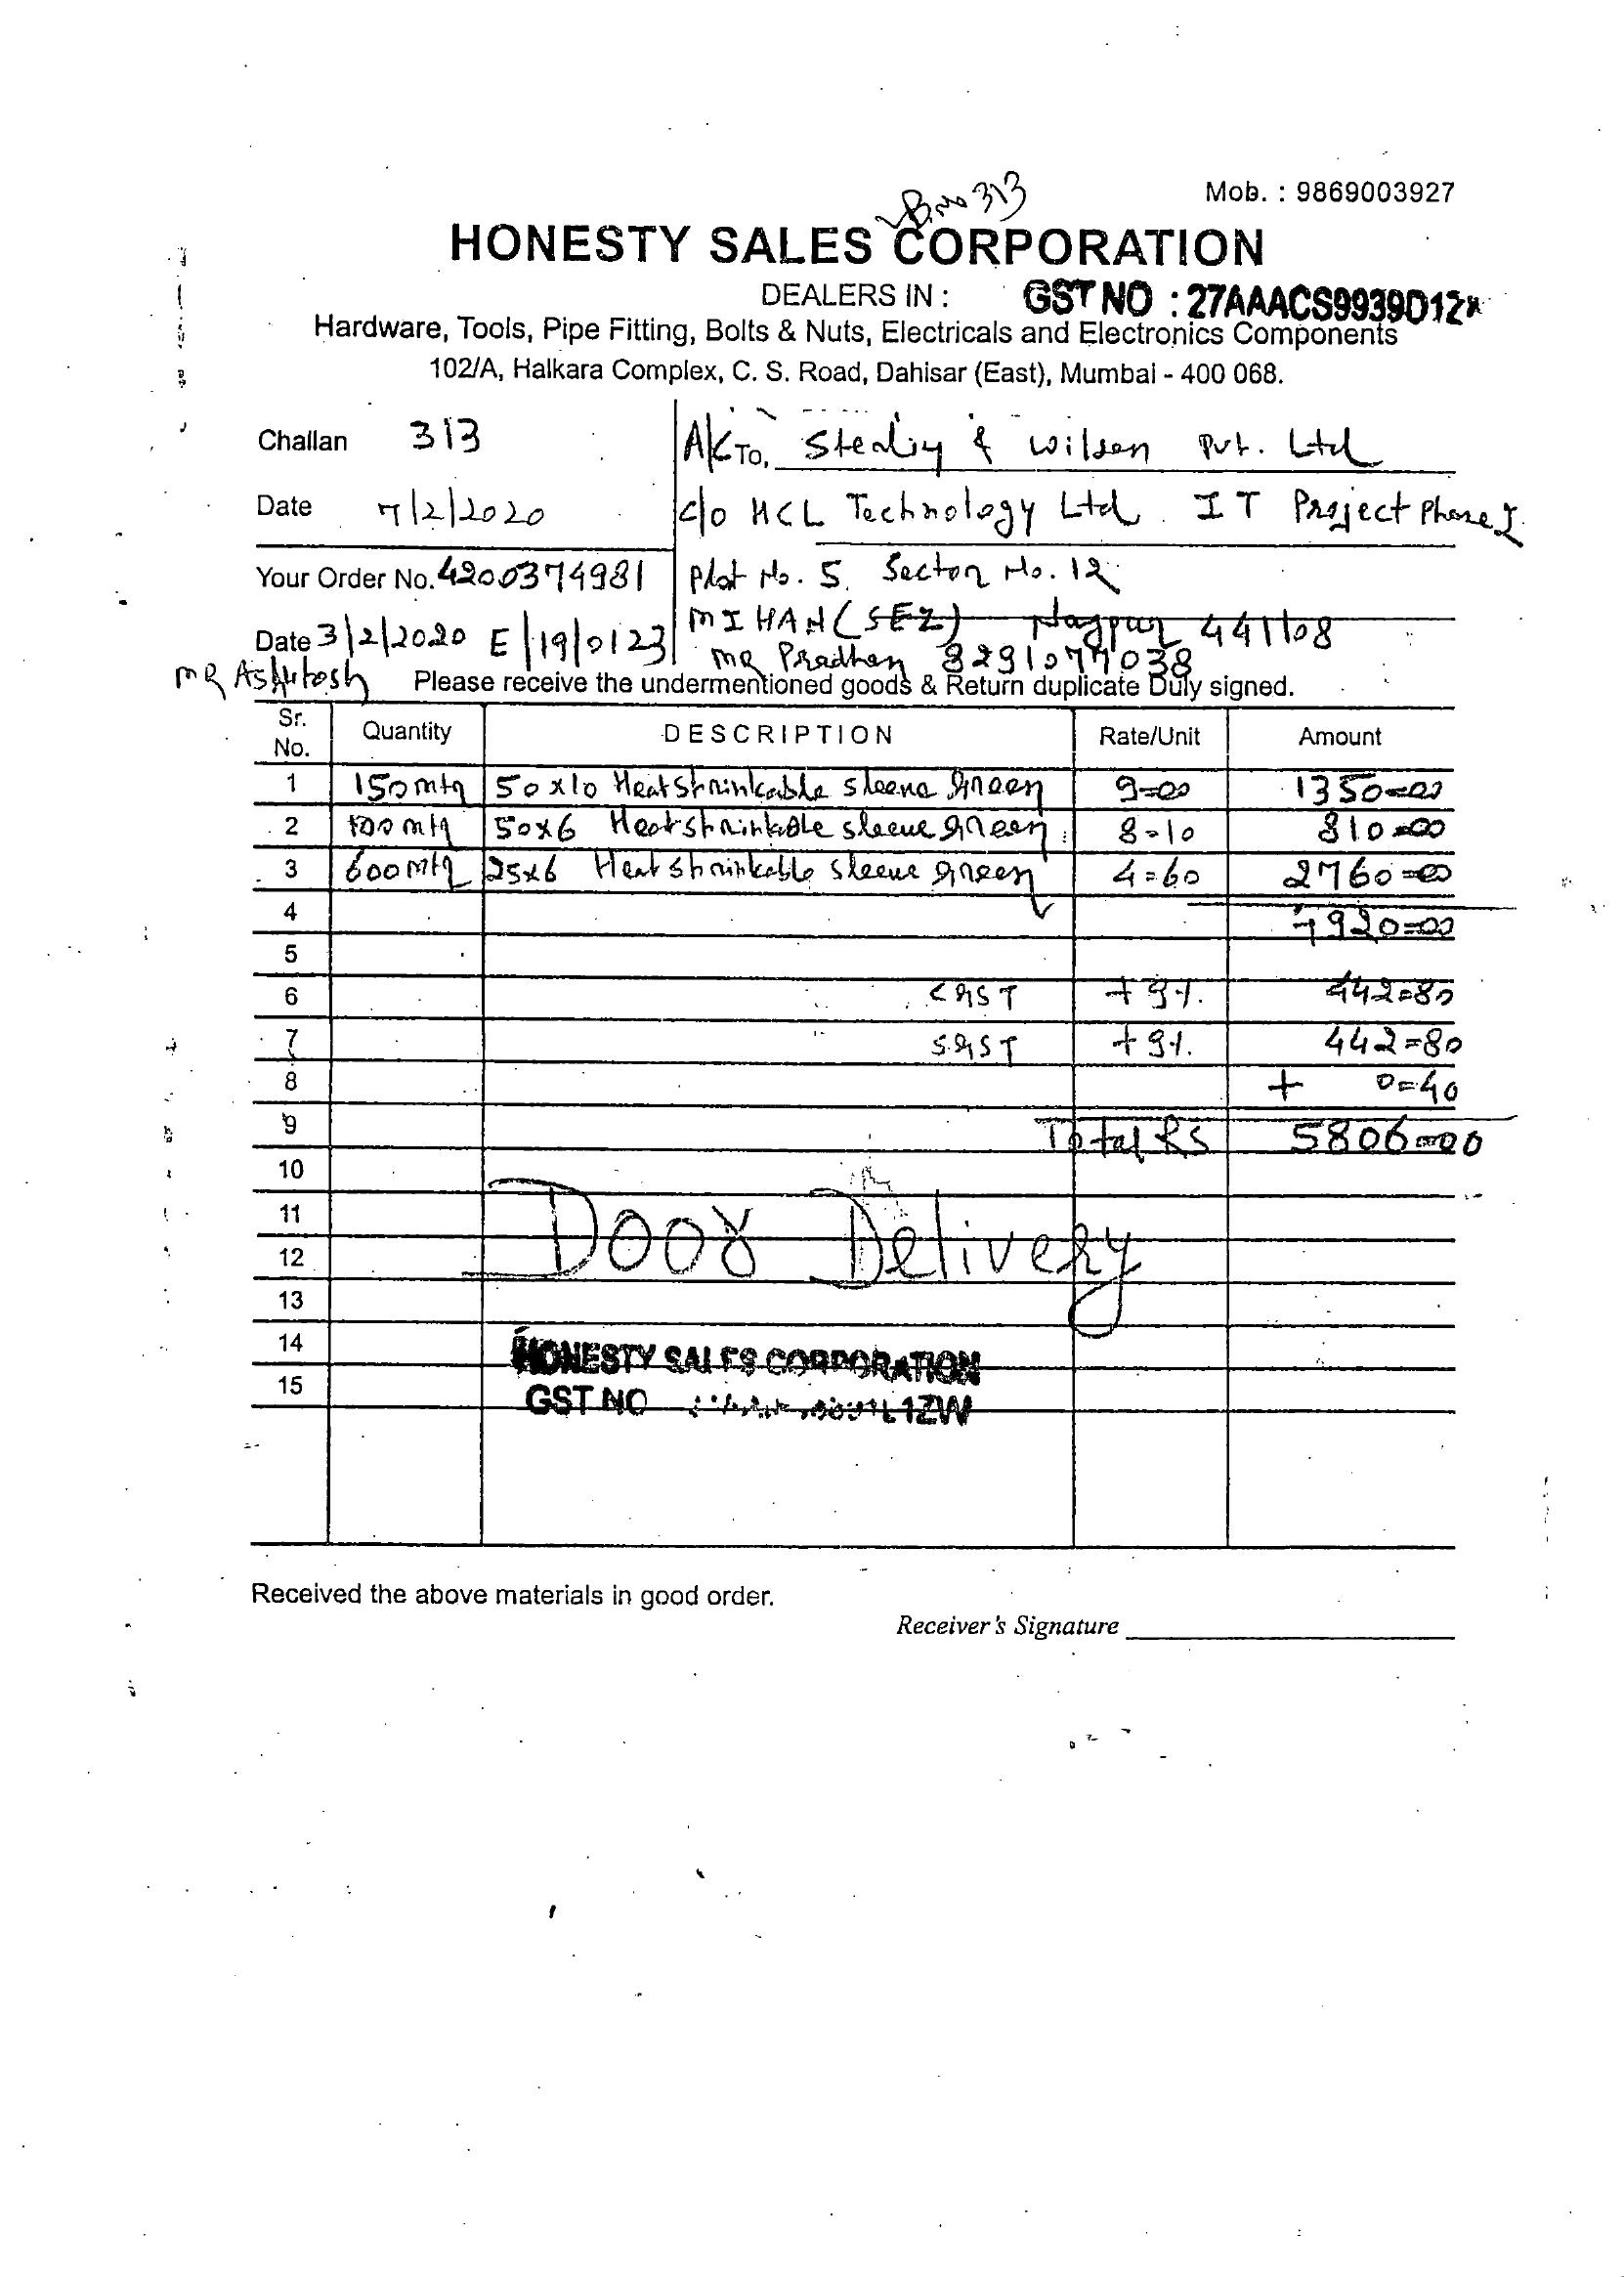 B.No 313
Mob. : 9869003927
HONESTY SALES CORPORATION
DEALERS IN : GST NO : 27AAACS9939D1Z
Hardware, Tools, Pipe Fitting, Bolts & Nuts, Electricals and Electronics Components
102/A, Halkara Complex, C. S. Road, Dahisar (East), Mumbai - 400 068.
Challan 313
A/C To, Sterling & Wilson Pvt. Ltd
Date 7/2/2020
C/o HCL Technology Ltd IT Project Phase I
Your Order No. 4200374981
Plot No. 5. Sector No. 12
Date 3/2/2020 E/19/0123
MIHAN (SEZ) Nagpur 441108
MR Ashutosh
MR Pradhan 8291077038
Please receive the undermentioned goods & Return duplicate Duly signed.
Sr. No. Quantity DESCRIPTION Rate/Unit Amount
1 150 mtr 50x10 Heatshrinkable sleeve Green 9=00 1350=00
2 100 mtr 50x6 Heatshrinkable sleeve Green 8=10 810=00
3 600 mtr 25x6 Heatshrinkable sleeve Green 4=60 2760=00
4 4920=00
5
6 CGST +9% 442=80
7 SGST +9% 442=80
8 + 0=40
9 Total Rs 5806=00
10
11
12 Door Delivery
13
14 HONESTY SALES CORPORATION
15 GST NO 1ZW
Received the above materials in good order.
Receiver's Signature